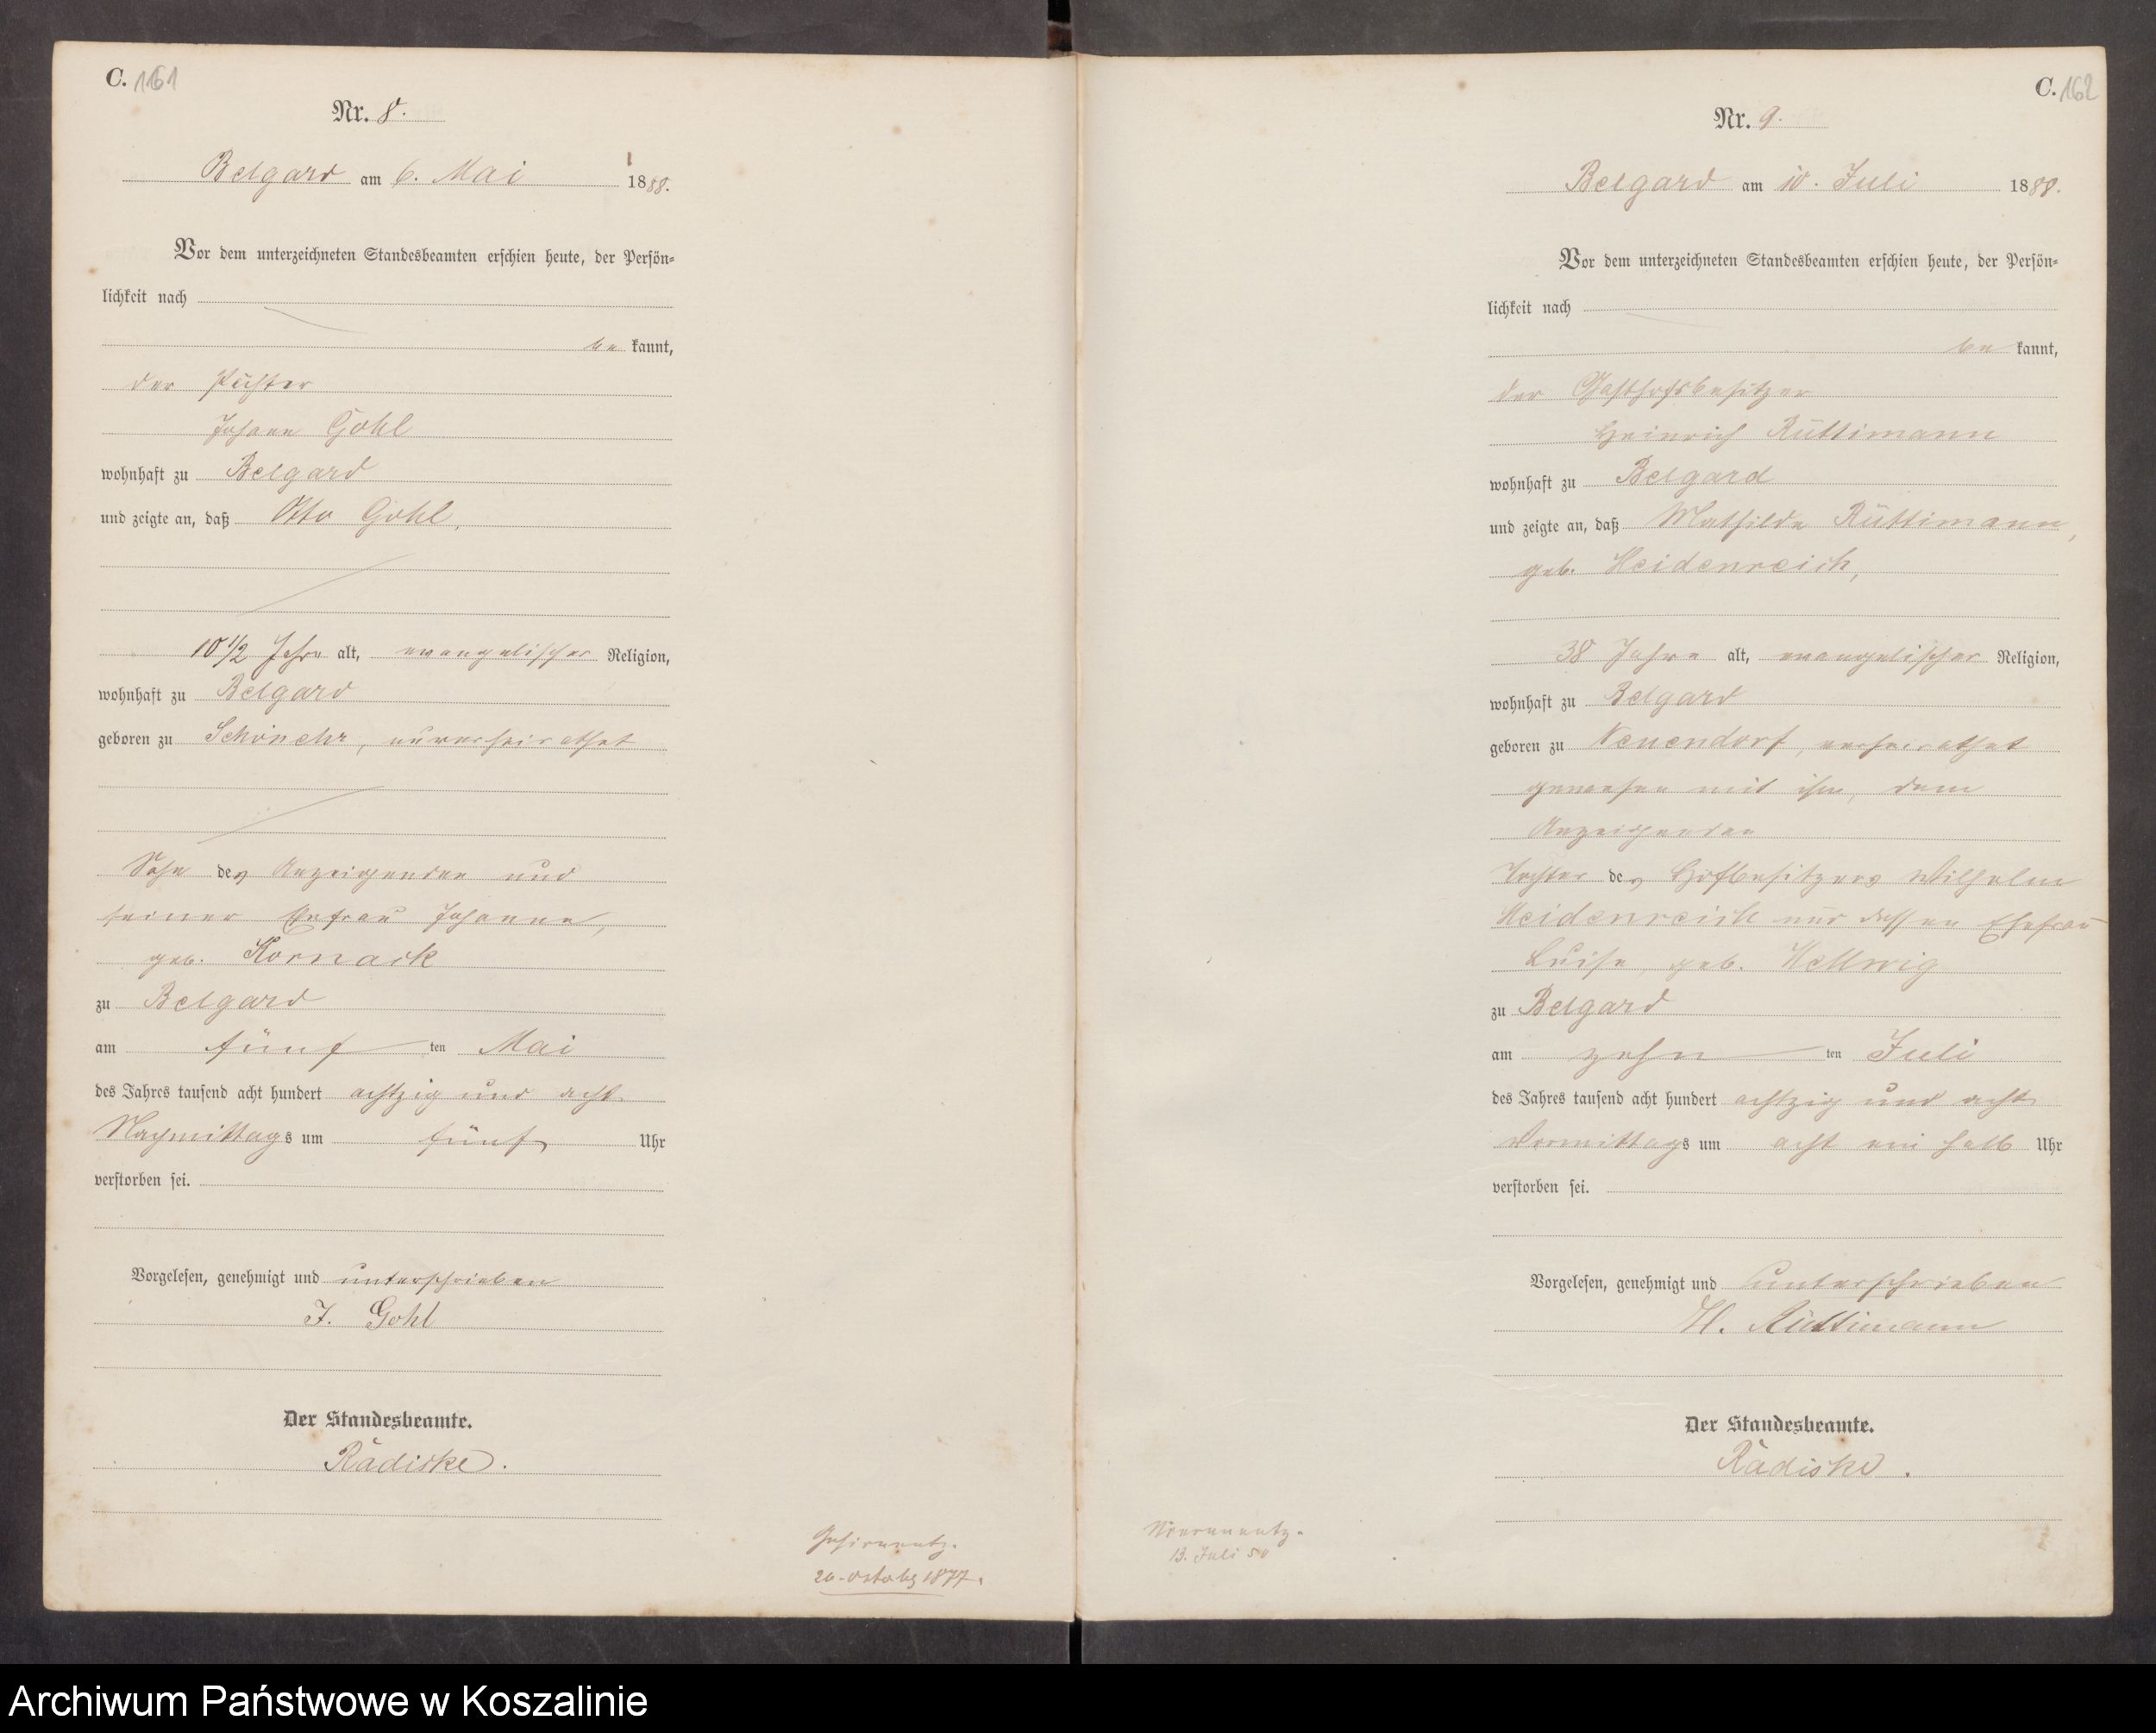 C. 161
Nr. 8.
Belgard am 6. Mai 1888.
Vor dem unterzeichneten Standesbeamten erschien heute, der Persön=
lichkeit nach
be kannt,
der Pächter
Johann Gohl
wohnhaft zu Belgard
und zeigte an, daß Otto Gohl,
10 1/2 Jahre alt, evangelischer Religion,
wohnhaft zu Belgard
geboren zu Schönehr, unverheirathet
Sohn des Anzeigenden und
seiner Ehefrau Johanne,
geb. Kornack
zu Belgard
am fünf ten Mai
des Jahres tausend acht hundert achtzig und acht
Nachmittags um fünf Uhr
verstorben sei.
Vorgelesen, genehmigt und unterschrieben
J. Gohl
Der Standesbeamte.
Rädiske.
Gehirnentz.
26. October 1877.
C. 162
Nr. 9.
Belgard am 10. Juli 1888.
Vor dem unterzeichneten Standesbeamten erschien heute, der Persön=
lichkeit nach
be kannt,
der Gasthofsbesitzer
Heinrich Rüttimann
wohnhaft zu Belgard
und zeigte an, daß Mathilde Rüttimann,
geb. Heidenreich,
38 Jahre alt, evangelischer Religion,
wohnhaft zu Belgard
geboren zu Neuendorf, verheirathet
gewesen mit ihm, dem
Anzeigenden
Tochter des Hofbesitzers Wilhelm
Heidenreich und dessen Ehefrau
Luise, geb. Hellwig
zu Belgard
am zehn ten Juli
des Jahres tausend acht hundert achtzig und acht
Vormittags um acht ein halb Uhr
verstorben sei.
Vorgelesen, genehmigt und unterschrieben
H. Rüttimann
Der Standesbeamte.
Rädiske.
Nierenentz.
13. Juli 50
Archiwum Państwowe w Koszalinie